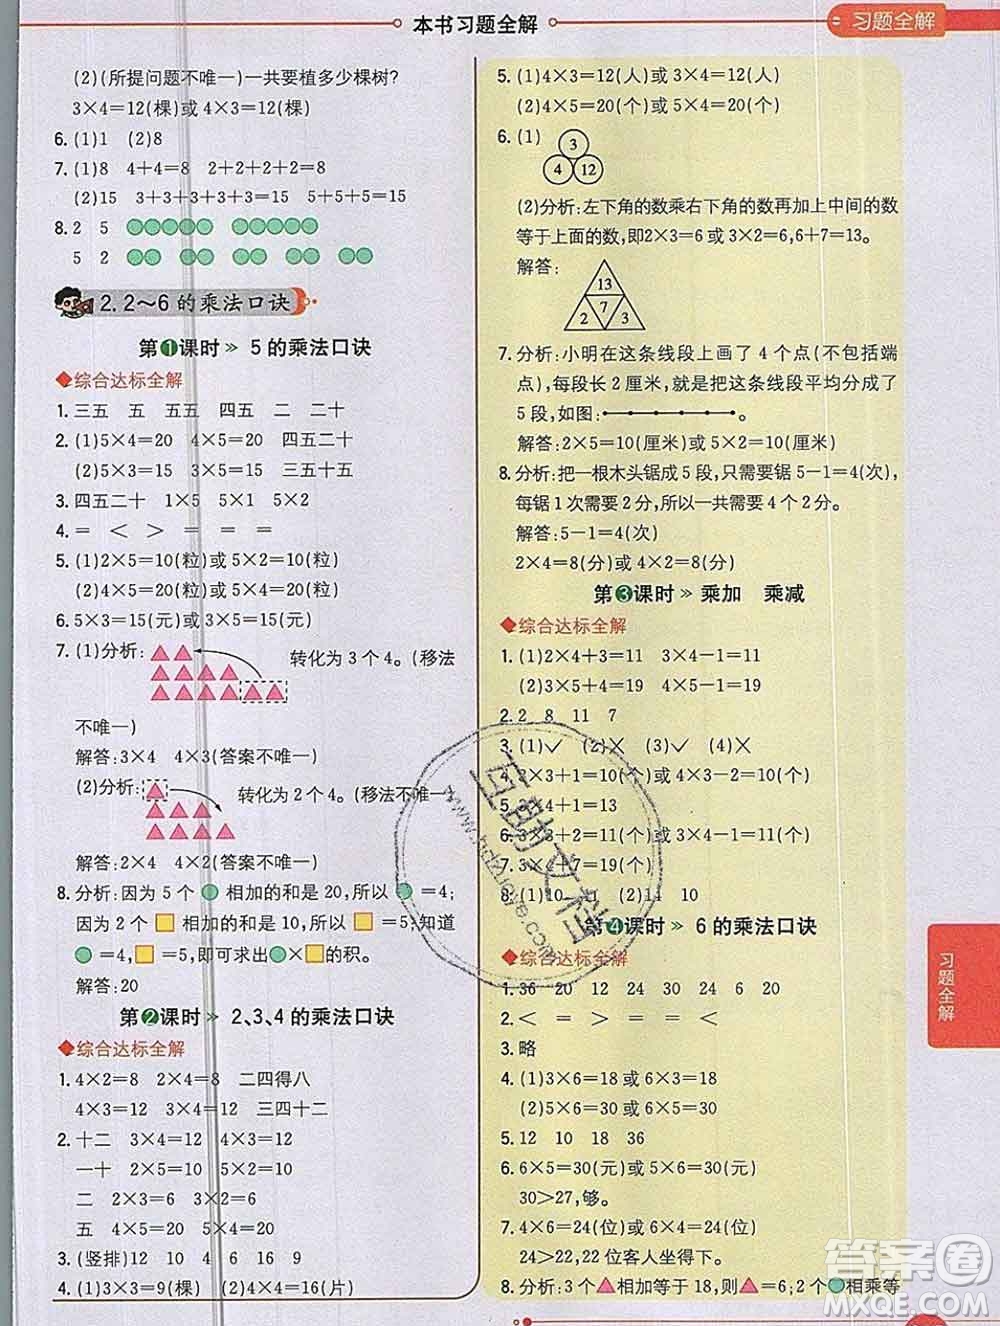 本书习题全解
习题全解
(2)(所提问题不唯一)一共要植多少棵树?
3×4=12(棵)或 4×3=12(棵)
6.(1)1 (2)8
7.(1)8 4+4=8 2+2+2+2=8
(2)15 3+3+3+3+3=15 5+5+5=15
8.2 5
5 2
2.2～6的乘法口诀
第1课时» 5的乘法口诀
◆综合达标全解
1.三五 五 五五 四五 二 二十
2.(1)5×4=20 4×5=20 四五二十
(2)5×3=15 3×5=15 三五十五
3.四五二十 1×5 5×1 5×2
4.= < > = =
5.(1)2×5=10(粒)或 5×2=10(粒)
(2)4×5=20(粒)或 5×4=20(粒)
6.5×3=15(元)或 3×5=15(元)
7.(1)分析:
转化为3个4。(移法
不唯一)
解答:3×4 4×3(答案不唯一)
(2)分析:
转化为2个4。(移法不唯一
解答:2×4 4×2(答案不唯一)
8.分析:因为5个 相加的和是20,所以 =4;
因为2个 相加的和是10,所以 =5;知道
=4, =5,即可求出 × 的积。
解答:20
第2课时» 2、3、4的乘法口诀
◆综合达标全解
1.4×2=8 2×4=8 二四得八
4×3=12 3×4=12 三四十二
2.十二 3×4=12 4×3=12
一十 2×5=10 5×2=10
二 2×3=6 3×2=6
五 4×5=20 5×4=20
3.(竖排)12 10 4 6 16 9
4.(1)3×3=9(棵) (2)4×4=16(片)
5.(1)4×3=12(人)或 3×4=12(人)
(2)4×5=20(个)或 5×4=20(个)
6.(1)
3
4 12
(2)分析:左下角的数乘右下角的数再加上中间的数
等于上面的数,即2×3=6或3×2=6,6+7=13。
解答:
13
7
2 3
7.分析:小明在这条线段上画了4个点(不包括端
点),每段长2厘米,就是把这条线段平均分成了
5段,如图: 。
解答:2×5=10(厘米)或5×2=10(厘米)
8.分析:把一根木头锯成5段,只需要锯5-1=4(次),
每锯1次需要2分,所以一共需要4个2分。
解答:5-1=4(次)
2×4=8(分)或 4×2=8(分)
第3课时» 乘加 乘减
◆综合达标全解
1.(1)2×4+3=11 3×4-1=11
(2)3×5+4=19 4×5-1=19
2.2 8 11 7
3.(1)✓ (2)✕ (3)✓ (4)✕
4.2×3+1=10(个) 3×4-2=10(个)
5.3×4+1=13
6.3×3+2=11(个) 3×4-1=11(个)
7.3×4+7=19(个)
8.(1)10 11 (2)14 10
第4课时» 6的乘法口诀
◆综合达标全解
1.36 20 12 24 30 6 20 12
2.< = > = = <
3.略
4.(1)3×6=18或6×3=18
(2)5×6=30或6×5=30
5.12 10 18 36
6.6×5=30(元)或 5×6=30(元)
30>27,够。
7.4×6=24(位)或 6×4=24(位)
24>22,22位客人坐得下。
8.分析:3个 相加等于18,则 =6;2个 相乘等
习题全解
互助文档
www.hdzuoye.com
答案圈
MXQE.COM